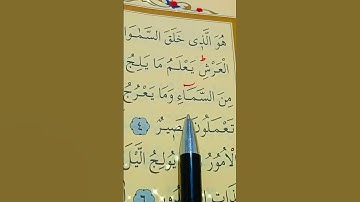 هُوَ الَّذٖى خَلَقَ السَّمٰوَا
الْعَرْشِ يَعْلَمُ مَا يَلِجُ
مِنَ السَّمَٓاءِ وَمَا يَعْرُجُ
تَعْمَلُونَ بَصٖيرٌ ﴿٤﴾
الْاُمُورُ يُولِجُ الَّيْلَ
﴿٦﴾